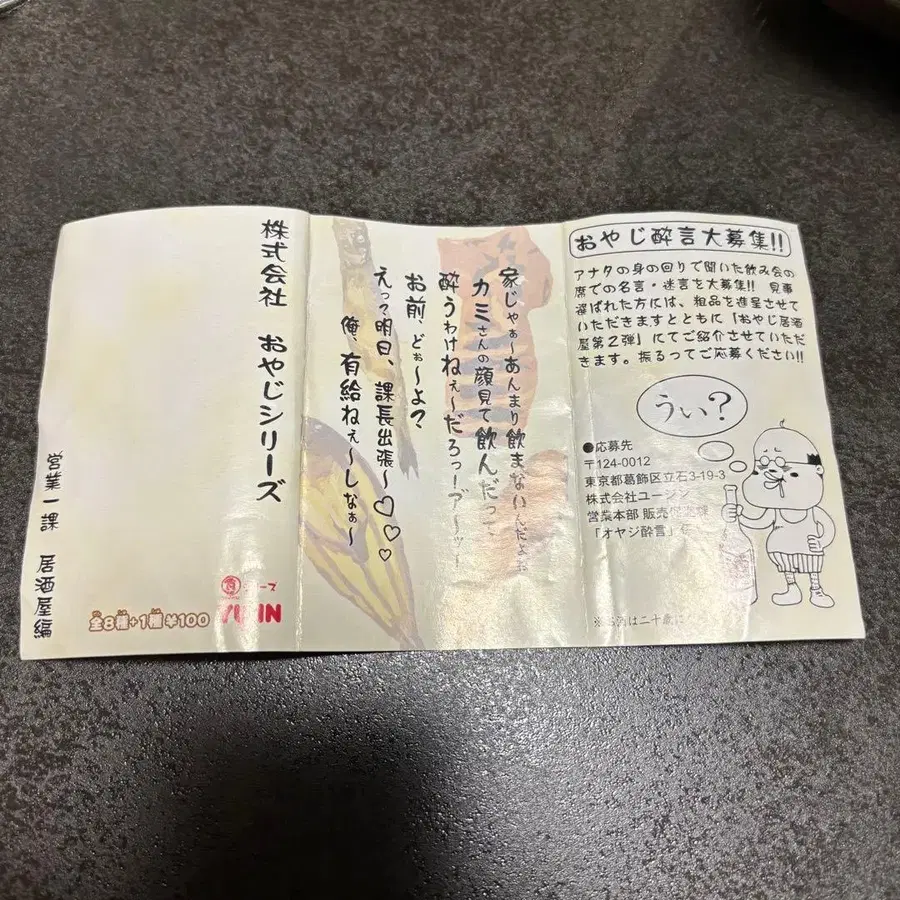 おやじ酔言大募集!!
アナタの身の回りで聞いた飲み会の
席での名言・迷言を大募集!! 見事
選ばれた方には、粗品を進呈させて
いただきますとともに「おやじ居酒
屋第2弾」にてご紹介させていただ
きます。振るってご応募ください!!
うぃ?
●応募先
〒124-0012
東京都葛飾区立石3-19-3
株式会社ユージン
営業本部 販売促進課
「オヤジ酔言」
※お酒は二十歳に
家じゃぁ〜あんまり飲まないんだよね
カミさんの顔見て飲んだって、
酔うわけねぇ〜だろっーブ〜ッ!
お前、どぉ〜よ?
えっ?明日、課長出張〜♡♡♡
俺、有給ねぇ〜しなぁ〜
株式会社 おやじシリーズ
営業一課 居酒屋編
全8種+1種 ¥100
YUJIN